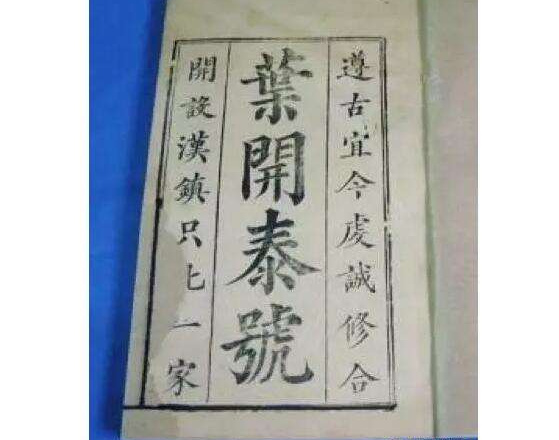 遵古宜今虔誠修合
葉開泰號
開設漢鎮只此一家